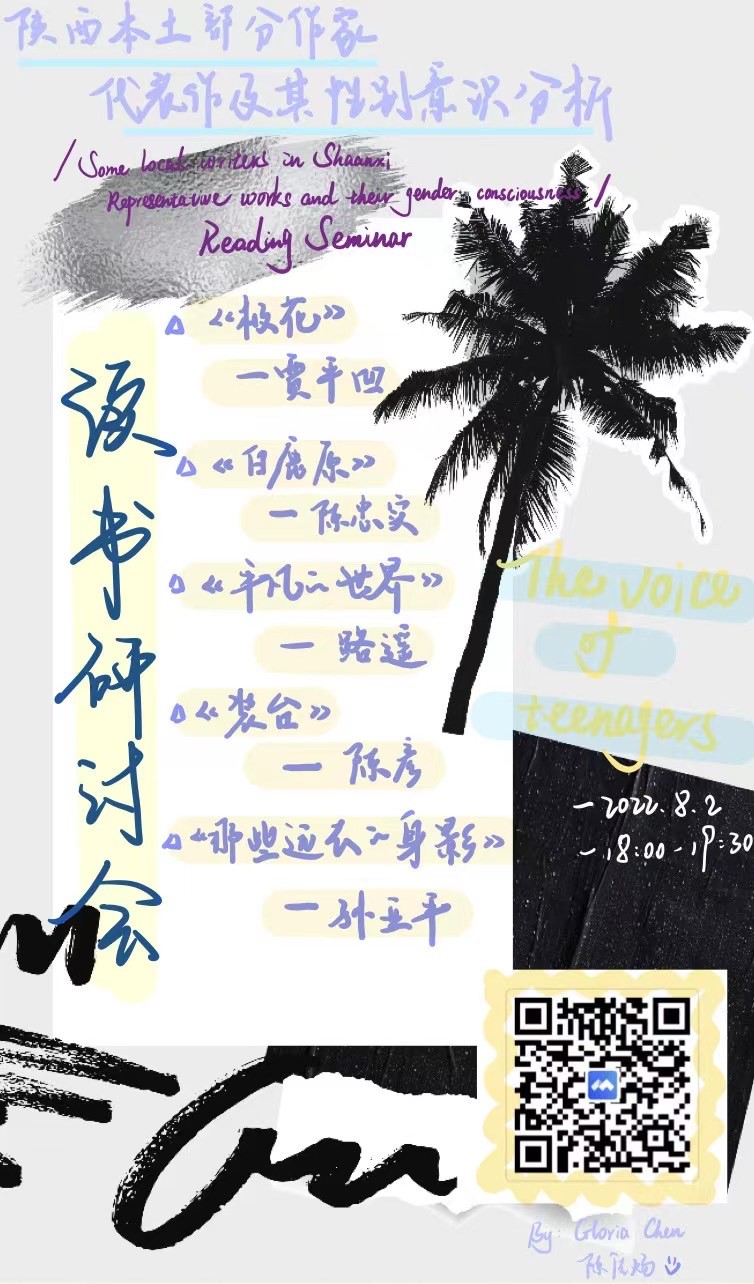 陕西本土部分作家
代表作及其性别意识分析
/ Some local writers in Shaanxi
Representative works and their gender consciousness /
Reading Seminar
读书研讨会
△ 《极花》
— 贾平凹
△ 《白鹿原》
— 陈忠实
△ 《平凡的世界》
— 路遥
△ 《装台》
— 陈彦
△ 《那些远去的身影》
— 孙亚平
The voice
of
teenagers
— 2022.8.2
— 18:00 - 19:30
By: Gloria Chen